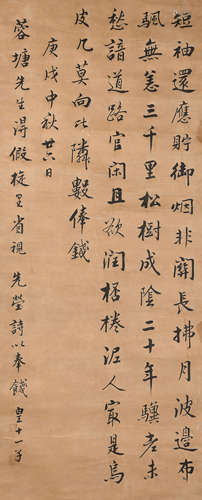 短袖還應貯御烟非關長拂月波邊布
颿無恙三千里松樹成陰二十年驥老未
愁諳道路官閑且欲潤桮棬泥人寂是烏
皮几莫向比隣數俸錢
庚戌中秋廿六日
蓉塘先生得假旋里省視先塋詩以奉餞皇十一子